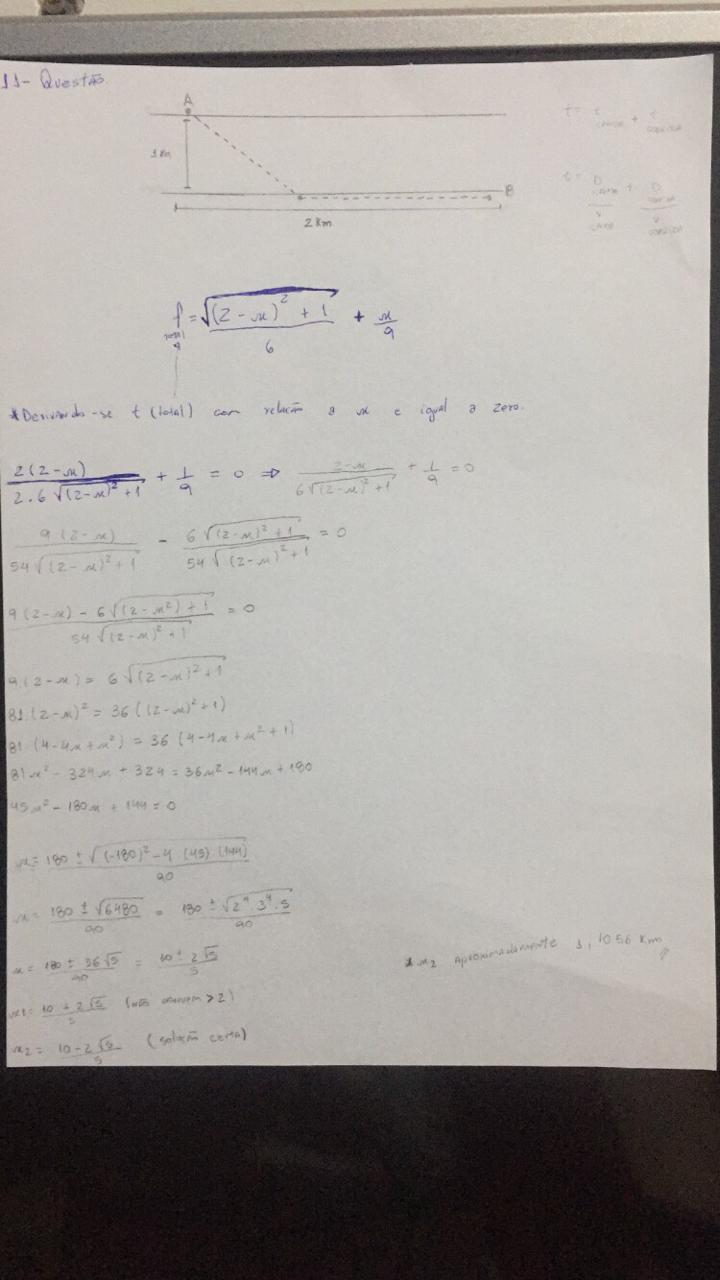 11- Questão.
A
1 Km
B
2 Km
t = t canoa + t corrida
t = D canoa / v canoa + D corrida / v corrida
t total = √((2-x)² + 1) / 6 + x/9
*Derivando-se t (total) com relação a x e igual a zero.
2(2-x) / 2.6√((2-x)²+1) + 1/9 = 0 ⇒ 2-x / 6√((2-x)²+1) + 1/9 = 0
9.(2-x) / 54√((2-x)²+1) - 6√((2-x)²+1) / 54√((2-x)²+1) = 0
9(2-x) - 6√((2-x²)+1 / 54√((2-x)²+1 = 0
9.(2-x) = 6√((2-x)²+1
81.(2-x)² = 36((2-x)²+1)
81.(4-4x+x²) = 36(4-4x+x²+1)
81x² - 324x + 324 = 36x² - 144x + 180
45x² - 180x + 144 = 0
x = 180 ± √((-180)² - 4.(45).(144)) / 90
x = 180 ± √6480 / 90 = 180 ± √(2⁴.3⁴.5) / 90
x = 180 ± 36√5 / 90 = 10 ± 2√5 / 5
x1 = 10 + 2√5 / 5 (não > 2)
x2 = 10 - 2√5 / 5 (solução certa)
* x2 Aproximadamente 1,1056 Km